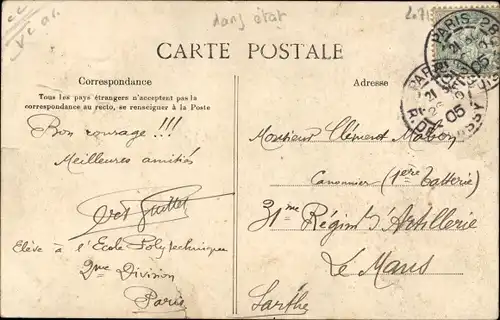 dans état
CARTE POSTALE
Correspondance
Tous les pays étrangers n'acceptent pas la
correspondance au recto, se renseigner à la Poste
Bon courage !!!
Meilleures amitiés
Guillet
Elève à l'Ecole Polytechnique
2me Division
Paris
Adresse
Monsieur Clément
Canonnier (1ère batterie)
31me Régimt d'Artillerie
Le Mans
Sarthe
PARIS
05
PARIS
05